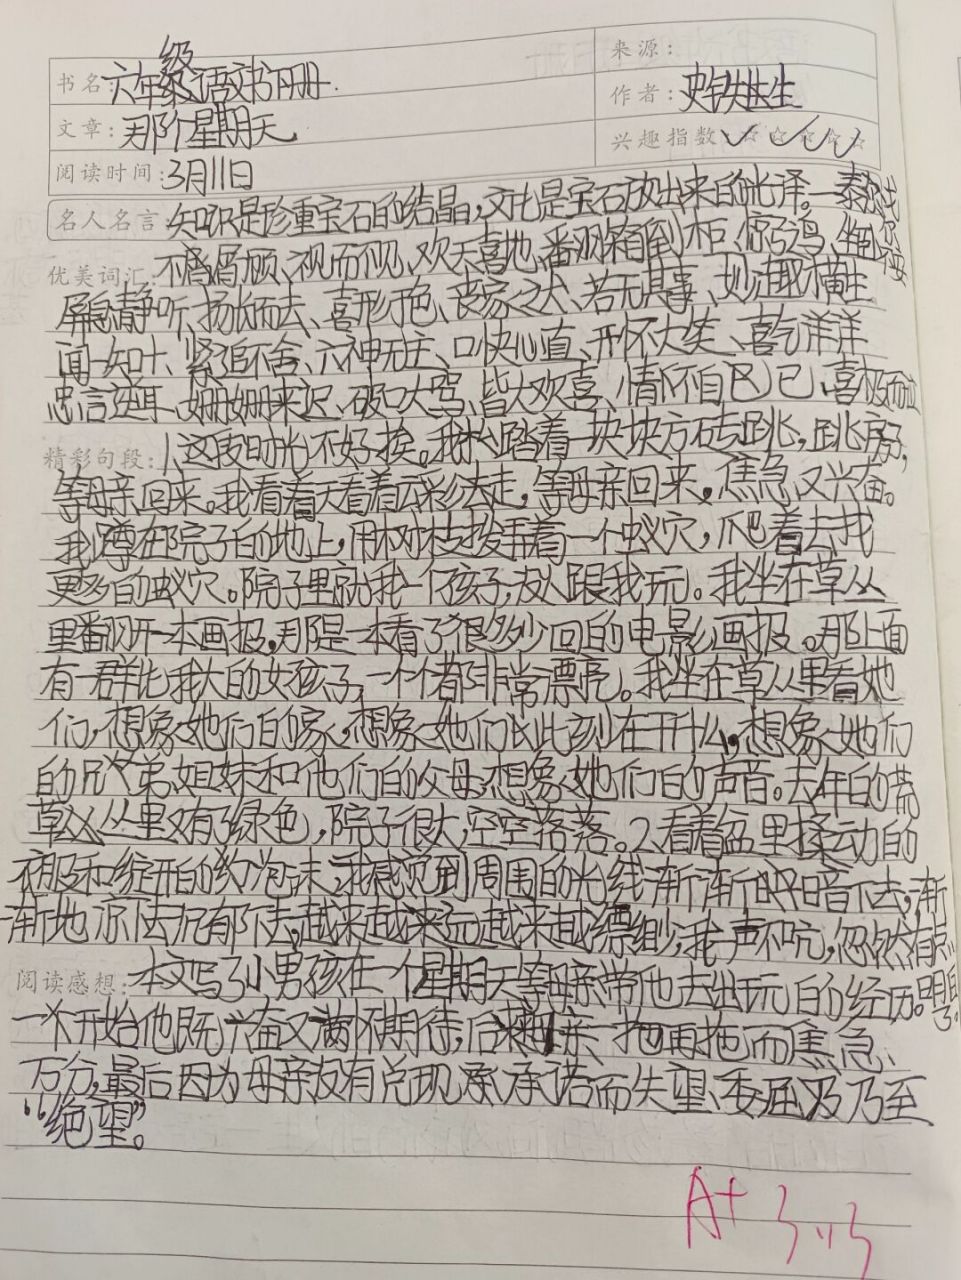 书名：六年级语文书下册.
来源：
作者：史铁生
文章：那个星期天
兴趣指数：☆☆☆☆☆
阅读时间：3月11日
名人名言 知识是珍重宝石的结晶，文化是宝石放出来的光泽。—泰戈尔
优美词汇：不屑顾、视而不见、欢天喜地、翻箱倒柜、惊弓鸟、坐卧不安
屏息静听、扬长而去、喜形于色、丧家之犬、若无其事、妙趣横生
闻一知十、紧追不舍、六神无主、口快心直、开怀大笑、喜气洋洋
忠言逆耳、姗姗来迟、破口大骂、皆大欢喜、情不自已、喜极而泣
精彩句段：1.这段时光不好挨。我踏着一块块方砖跳，跳房子，
等母亲回来。我看着天看着云彩走，等母亲回来，焦急又兴奋。
我蹲在院子的地上，用树枝拨弄着一个蚁穴，爬着去找
更多的蚁穴。院子里就我一个孩子，没人跟我玩。我坐在草丛
里翻开一本画报，那是一本看了很多回的电影画报。那上面
有一群比我大的女孩子，一个个都非常漂亮。我坐在草丛里看她
们，想象她们的家，想象她们此刻在干什么，想象她们
的兄弟姐妹和他们的父母，想象她们的声音。去年的荒
草丛里又有了绿色，院子很大，空空落落。2.看着盆里揉动的
衣服和绽开的泡沫，我感觉到周围的光线渐渐暗下去，渐
渐地凉下去沉郁下去，越来越远越来越缥缈，我一声不吭，忽然有点
明白了。
阅读感想：本文写了小男孩在一个星期天等母亲带他去出玩的经历。
一个开始他既兴奋又满怀期待，后来母亲一拖再拖而焦急
万分，最后因为母亲没有兑现承诺而失望、委屈及乃至
“绝望”。
A+